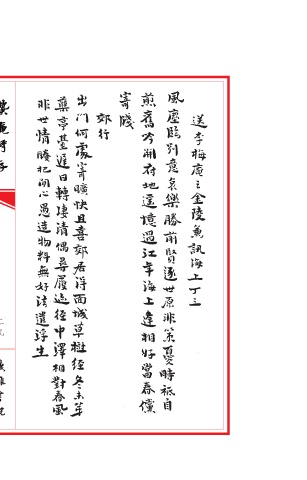 送李梅庵之金陵兼訊海上丁三
風塵臨別意哀樂勝前賢遯世原非策憂時祇自
煎舊吟開府地還憶過江年海上逢相好當春儻
寄牋
郊行
出門何處寄曠快且喜郊居得面城草樹經冬未萃
藥亭臺遲日轉淒清偶尋履迹徑中澤相對春風
非世情賸把閒心遇造物料無好法遣浮生